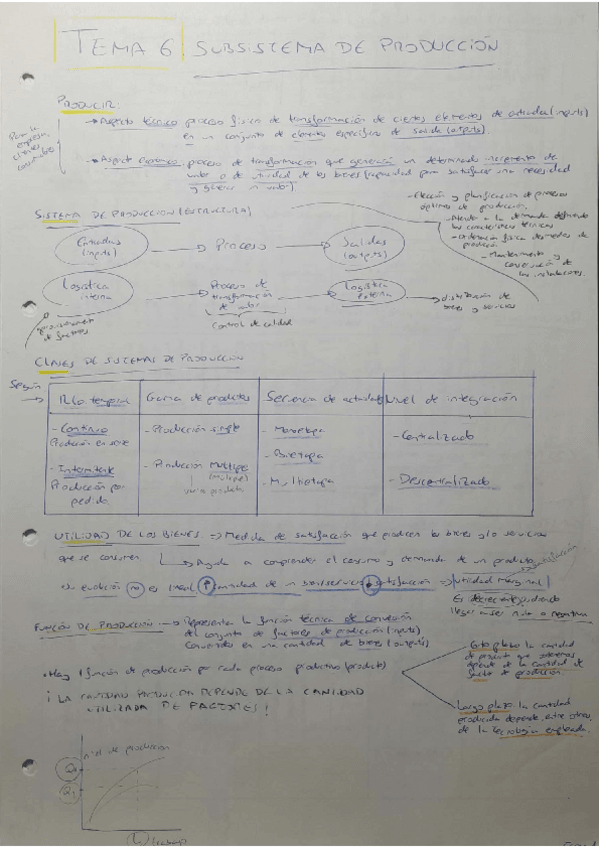 TEMA 6 SUBSISTEMA DE PRODUCCIÓN
PRODUCIR:
→ Aspecto técnico: proceso físico de transformación de ciertos elementos de entrada (inputs)
en un conjunto de elementos específicos de salida (outputs).
→ Aspecto económico: proceso de transformación que genera un determinado incremento de
valor o de utilidad de los bienes (capacidad para satisfacer una necesidad
y generar valor)
SISTEMA DE PRODUCCIÓN (ESTRUCTURA)
- Elección y planificación de procesos
óptimos de producción.
- Atender a la demanda definiendo
las características técnicas
- Ordenación física de medios de
producción
- Mantenimiento y
conservación de
las instalaciones.
Entradas
(inputs)
→ Proceso →
Salidas
(outputs)
Logística
interna
→ Proceso de
transformación
de valor
→
Logística
externa
→ distribución de
bienes y servicios
de factores
Control de calidad
CLASES DE SISTEMAS DE PRODUCCIÓN
Según
→
Rdo temporal
- Continuo
Producción en serie
- Intermitente
Producción por
pedido
Gama de productos
- Producción simple
- Producción múltiple
(múltiple)
varios productos
Secuencia de actividades
- Monoetapa
- Bietapa
- Multietapa
Nivel de integración
- Centralizado
- Descentralizado
UTILIDAD DE LOS BIENES ⇒ Medida de satisfacción que producen los bienes y/o servicios
que se consumen → Ayuda a comprender el consumo y demanda de un producto
⇒ evolución no es lineal ↑ cantidad de un bien/servicio ↓ satisfacción ⇒ utilidad marginal
satisfacción
Es decreciente pudiendo
llegar a ser nula o negativa
FUNCIÓN DE PRODUCCIÓN → Representa la función técnica de conversión
del conjunto de factores de producción (inputs)
convertidos en una cantidad de bienes (outputs)
• Hay 1 función de producción por cada proceso productivo (producto)
¡ LA CANTIDAD PRODUCIDA DEPENDE DE LA CANTIDAD
UTILIZADA DE FACTORES!
Corto plazo: la cantidad
de producto que obtenemos
depende de la cantidad de
factor de producción.
Largo plazo: la cantidad
producida depende, entre otros,
de la tecnología empleada.
nivel de producción
Q₁
L₁ trabajo